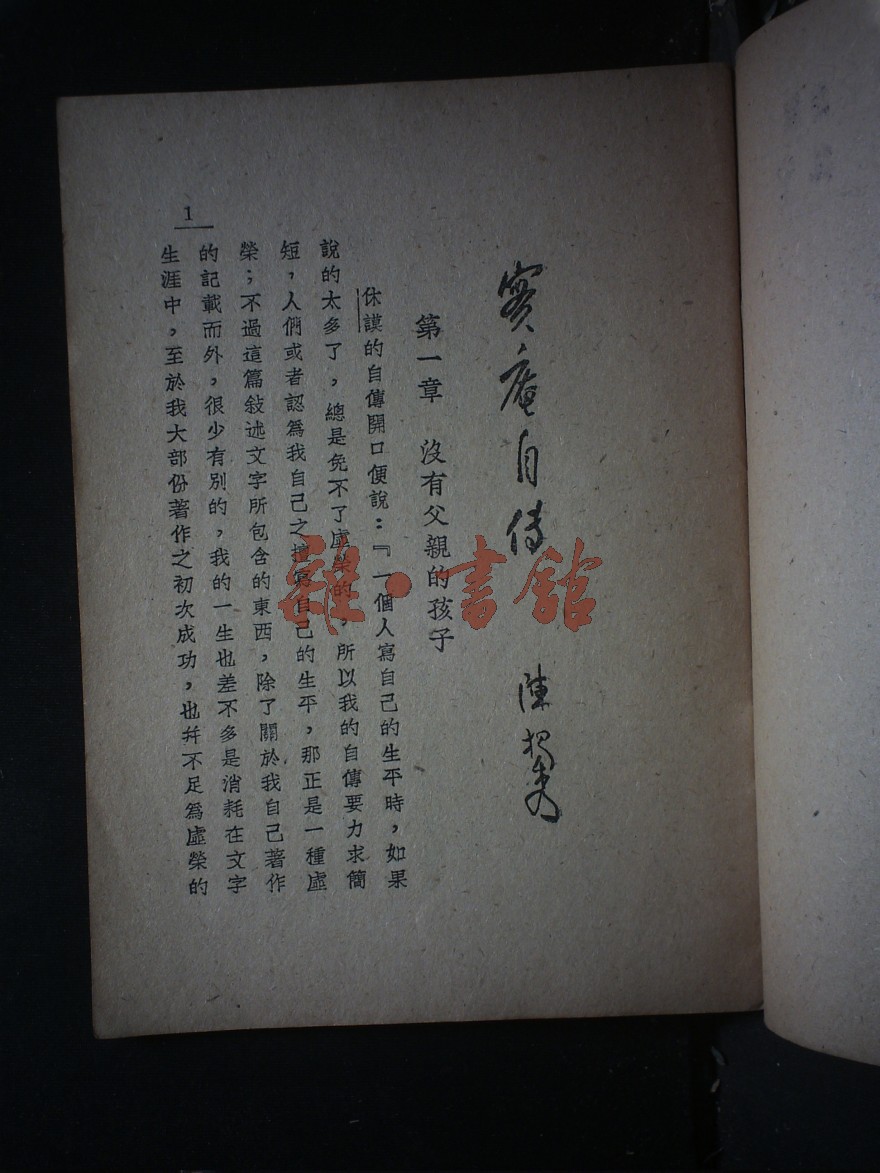 實庵自傳
陳獨秀
第一章 沒有父親的孩子
休謨的自傳開口便說：『一個人寫自己的生平時，如果
說的太多了，總是免不了虛榮的，所以我的自傳要力求簡
短，人們或者認爲我自己之擅寫自己的生平，那正是一種虛
榮；不過這篇敍述文字所包含的東西，除了關於我自己著作
的記載而外，很少有別的，我的一生也差不多是消耗在文字
生涯中，至於我大部份著作之初次成功，也幷不足爲虛榮的
1
雜·書館